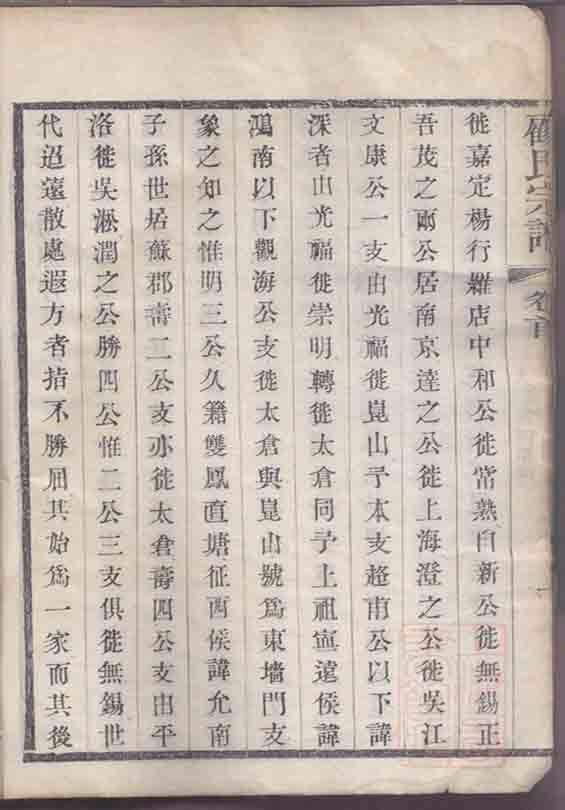 顧氏宗譜 卷首
徙嘉定楊行羅店中和公徙常熟自新公徙無錫正
吾茂之兩公居南京達之公徙上海澄之公徙吳江
文康公一支由光福徙崑山予本支趨南公以下諱
深者由光福徙崇明轉徙太倉同予上祖寧遠侯諱
鴻南以下觀海公支徙太倉與崑山號爲東墻門支
象之知之惟明三公久籍雙鳳直塘征西侯諱允南
子孫世居蘇郡壽二公支亦徙太倉壽四公支由平
洛徙吳淞潤之公勝四公惟二公三支俱徙無錫世
代迢遠散處遐方者指不勝屈其始爲一家而其後